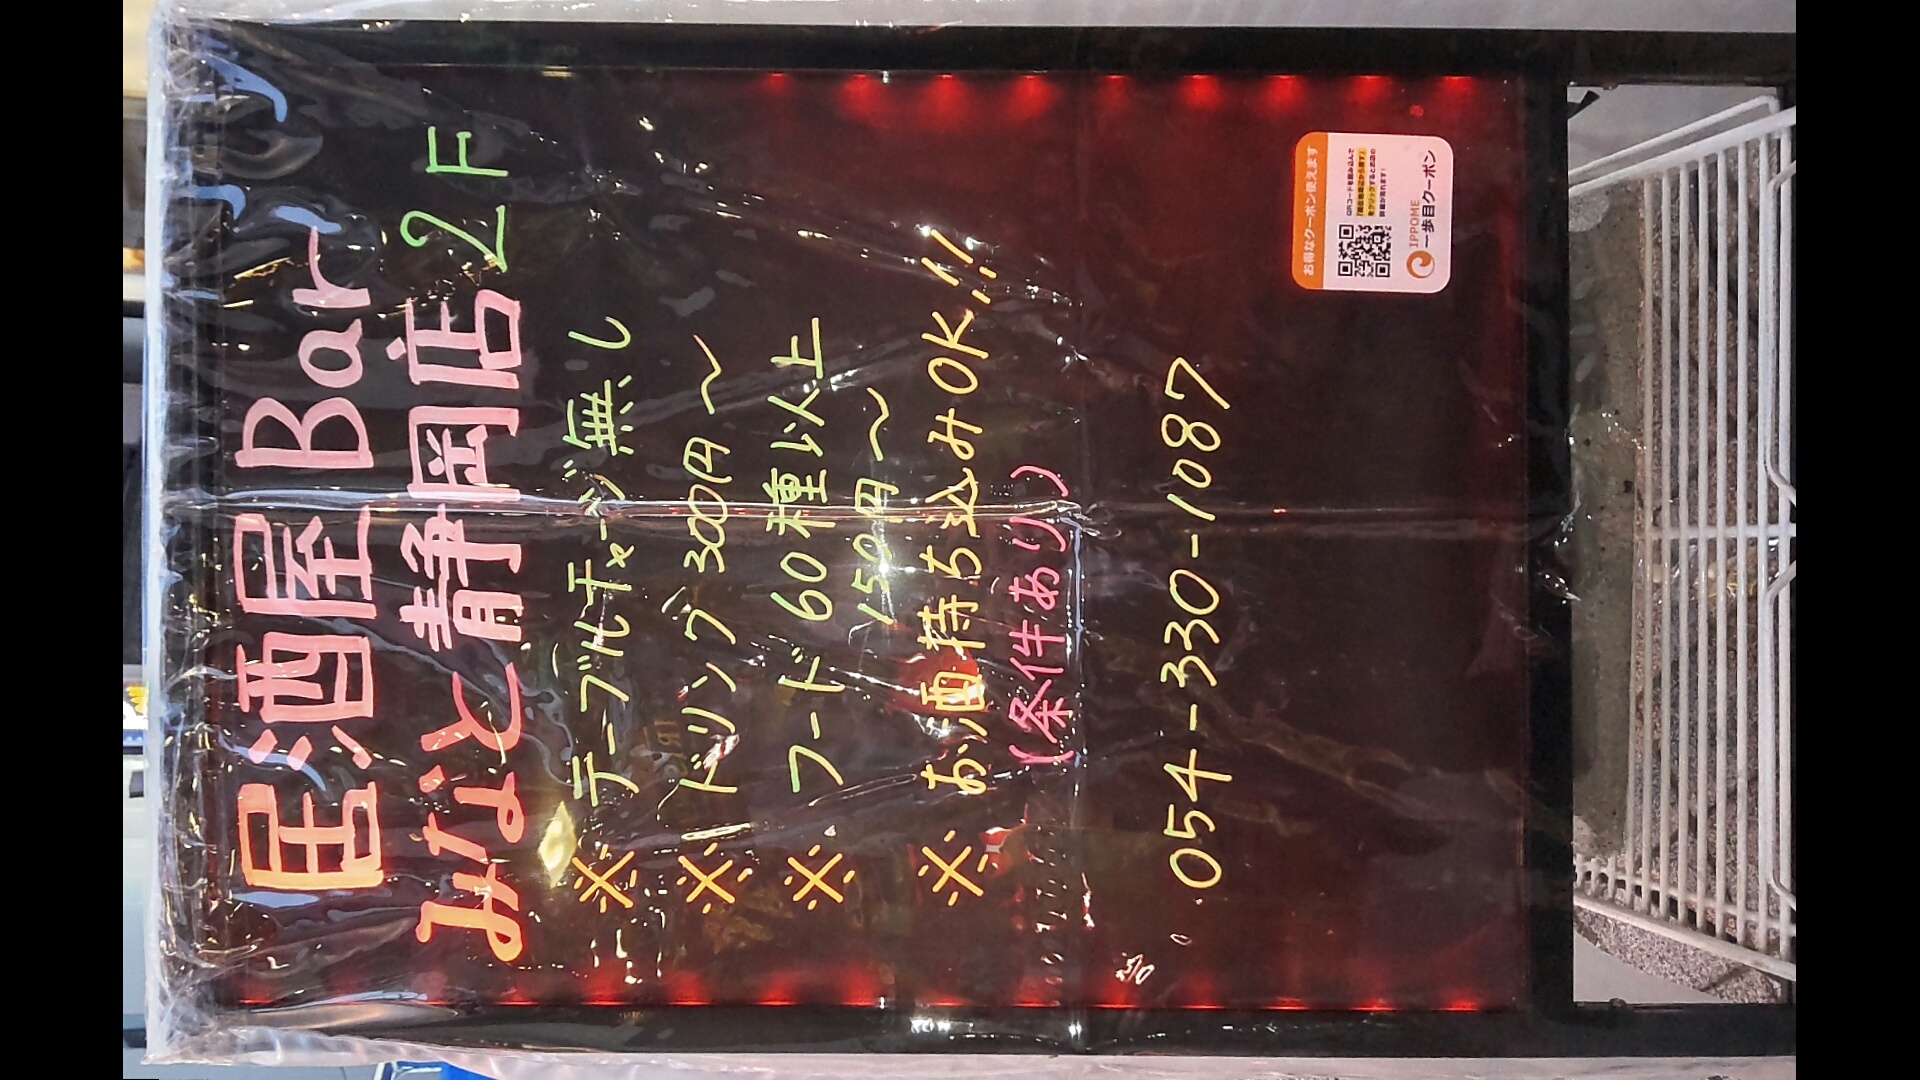 居酒屋 Bar
みなと静岡店 2F
※ テーブルチャージ無し
※ ドリンク 300円〜
※ フード 60種以上
150円〜
※ お酒持ち込みOK!!
(条件あり)
054-330-1087
お得なクーポン使えます
QRコードを読み込んで
をクリックするとお店の
IPPOME
一歩目クーポン